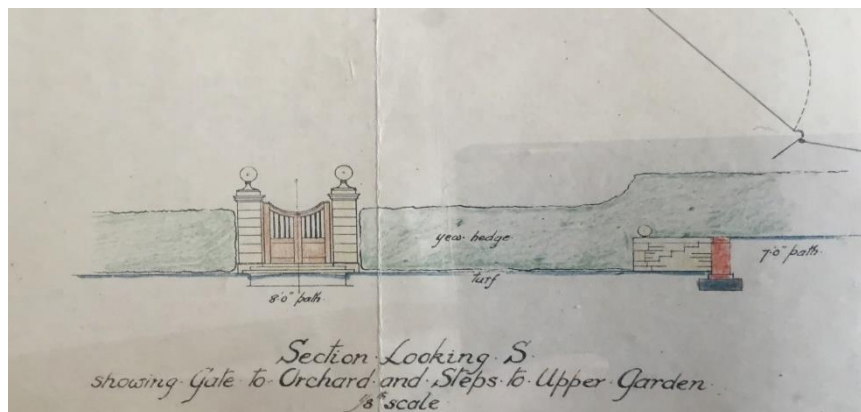 yew hedge
7'0" path.
turf
8'0" path.
Section Looking S.
showing Gate to Orchard and Steps to Upper Garden.
1/8th scale